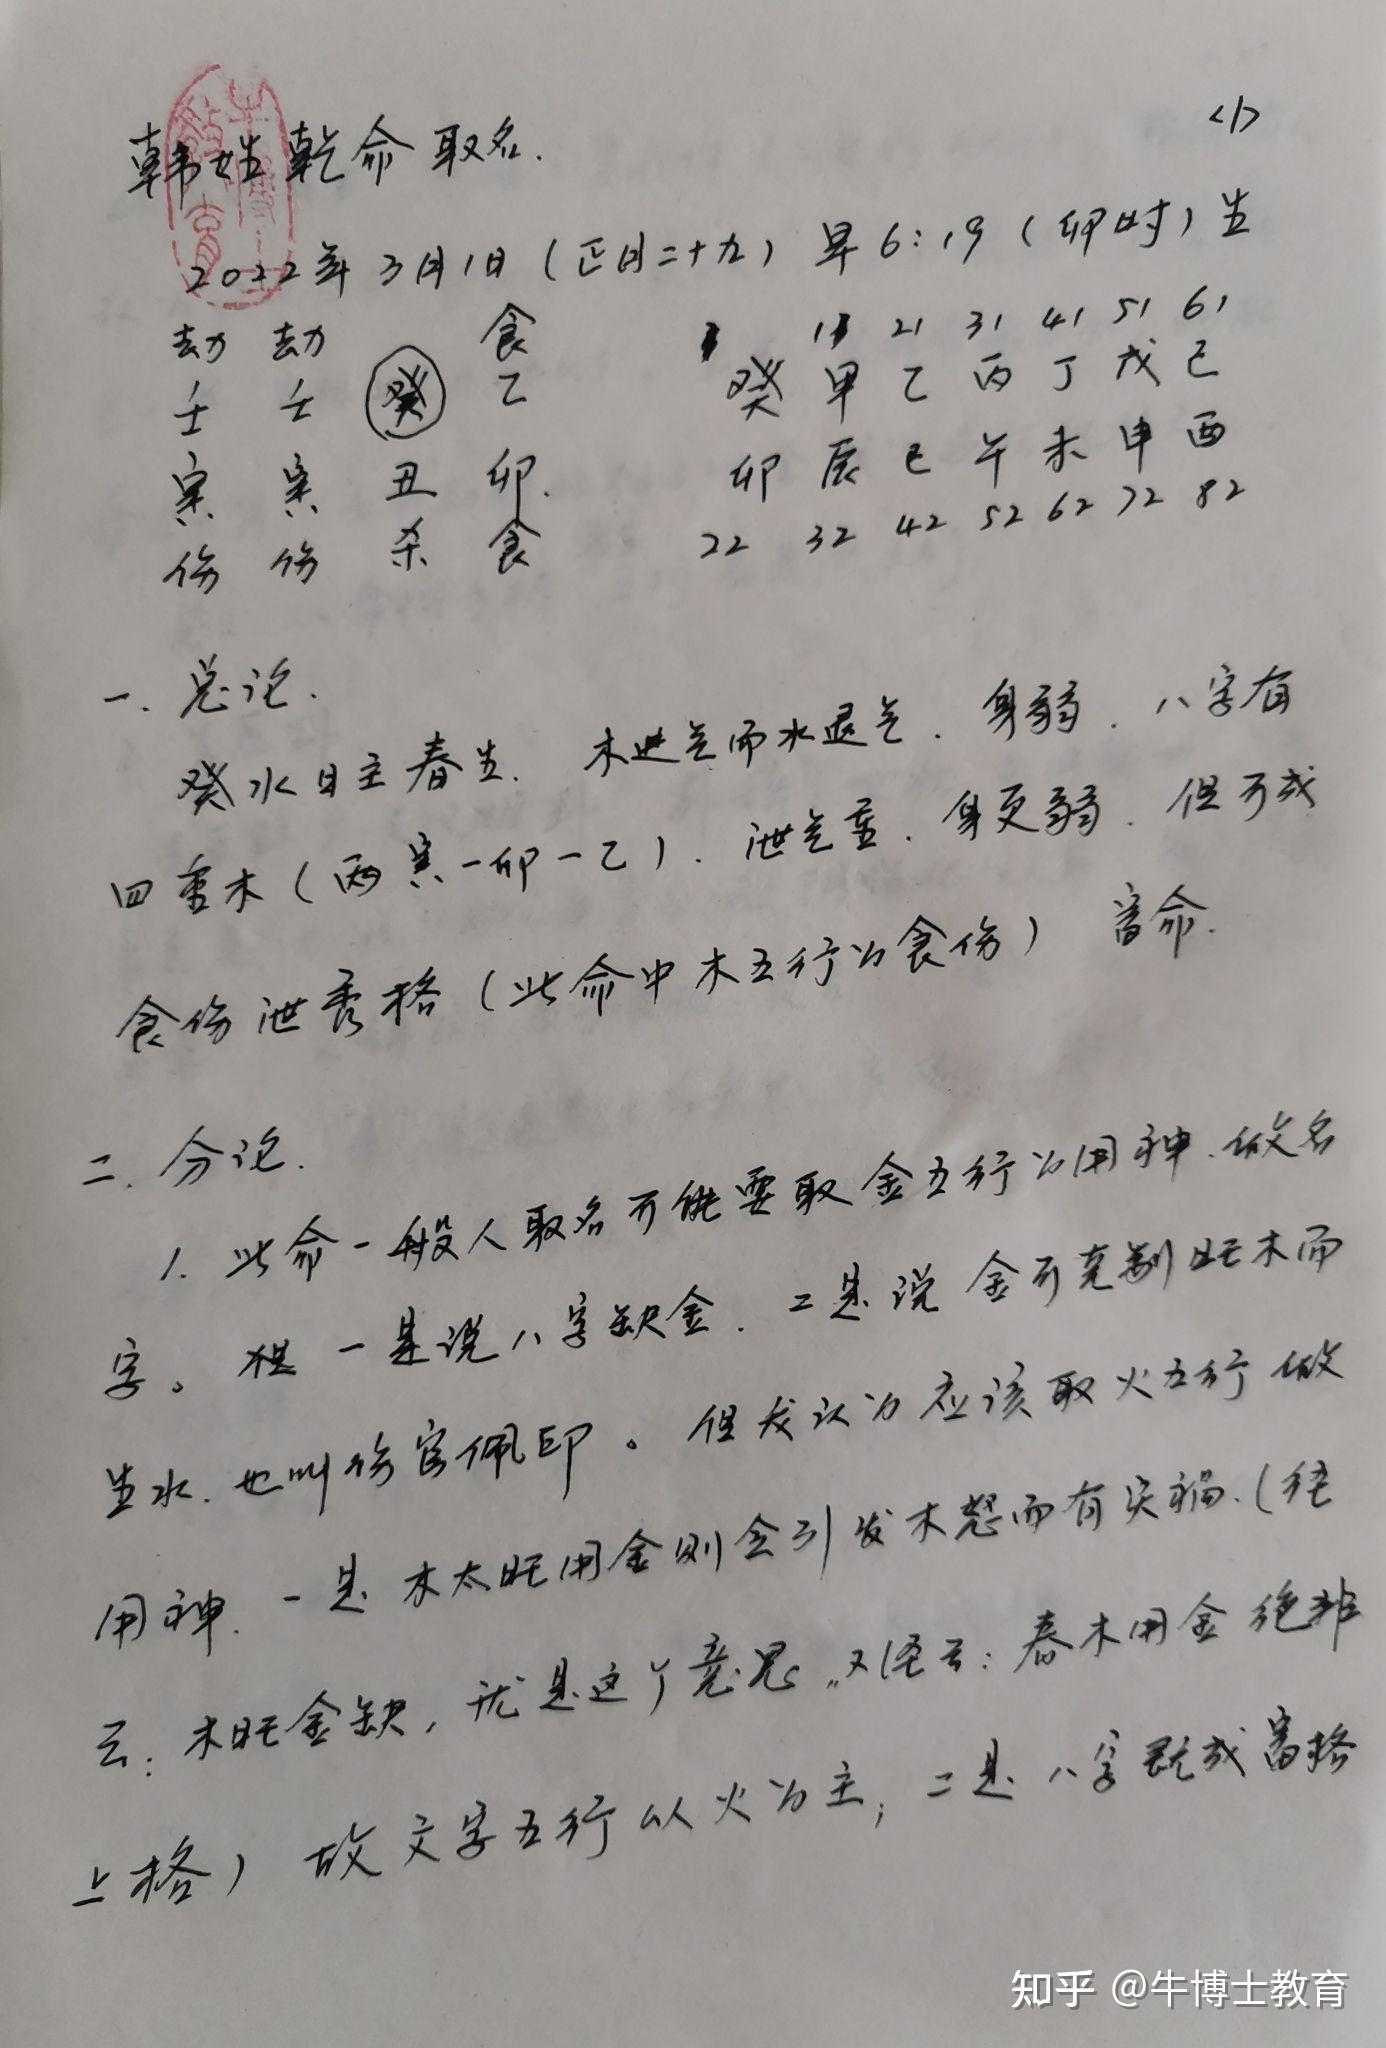 <1>
韩姓乾命取名.
2022年3月1日(正月二十九)早6:19(卯时)生
劫 劫 食
壬 壬 癸 乙
寅 寅 丑 卯.
伤 伤 杀 食
11 21 31 41 51 61
癸 甲 乙 丙 丁 戊 己
卯 辰 巳 午 未 申 酉
22 32 42 52 62 72 82
一. 总论.
癸水日主春生. 木进气而水退气. 身弱. 八字有
四重木(两寅一卯一乙). 泄气重. 身更弱. 但可成
食伤泄秀格(此命中木五行为食伤) 富命.
二. 分论.
1. 此命一般人取名可能要取金五行为用神. 做名
字。 一是说八字缺金. 二是说金可克制旺木而
生水. 也叫伤官佩印。但我认为应该取火五行做
用神. 一是木太旺用金则会引发木怒而有灾祸.(经
云: 木旺金缺, 就是这个意思. 又经云: 春木用金绝非
上格) 故文字五行以火为主; 二是八字既成富格
知乎 @牛博士教育